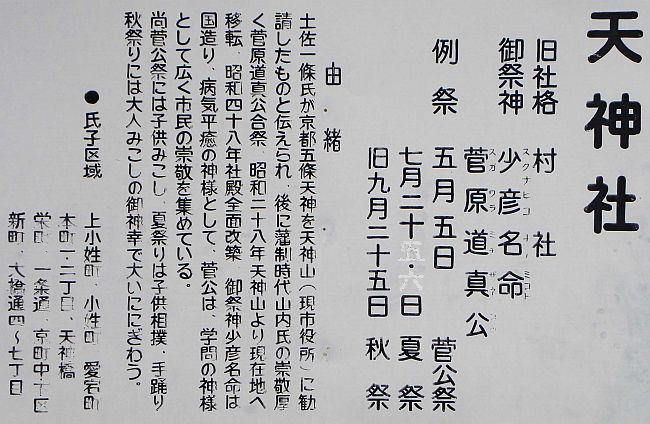 天神社
旧社格 村社
御祭神 少彦名命
スクナヒコナノミコト
菅原道真公
スガワラミチザネ
例祭 五月五日 菅公祭
七月二十五・六日 夏祭
旧九月二十五日 秋祭
由緒
土佐一條氏が京都五條天神を天神山(現市役所)に勧
請したものと伝えられ、後に藩制時代山内氏の崇敬厚
く菅原道真公合祭、昭和二十八年天神山より現在地へ
移転、昭和四十八年社殿全面改築、御祭神少彦名命は
国造り、病気平癒の神様として、菅公は、学問の神様
として広く市民の崇敬を集めている。
尚菅公祭には子供みこし、夏祭りは子供相撲、手踊り
秋祭りには大人みこしの御神幸で大いににぎわう。
●氏子区域
上小姓町、小姓町、愛宕町
本町一・二丁目、天神橋
栄町、一条通、京町中・下区
新町、大橋通四〜七丁目